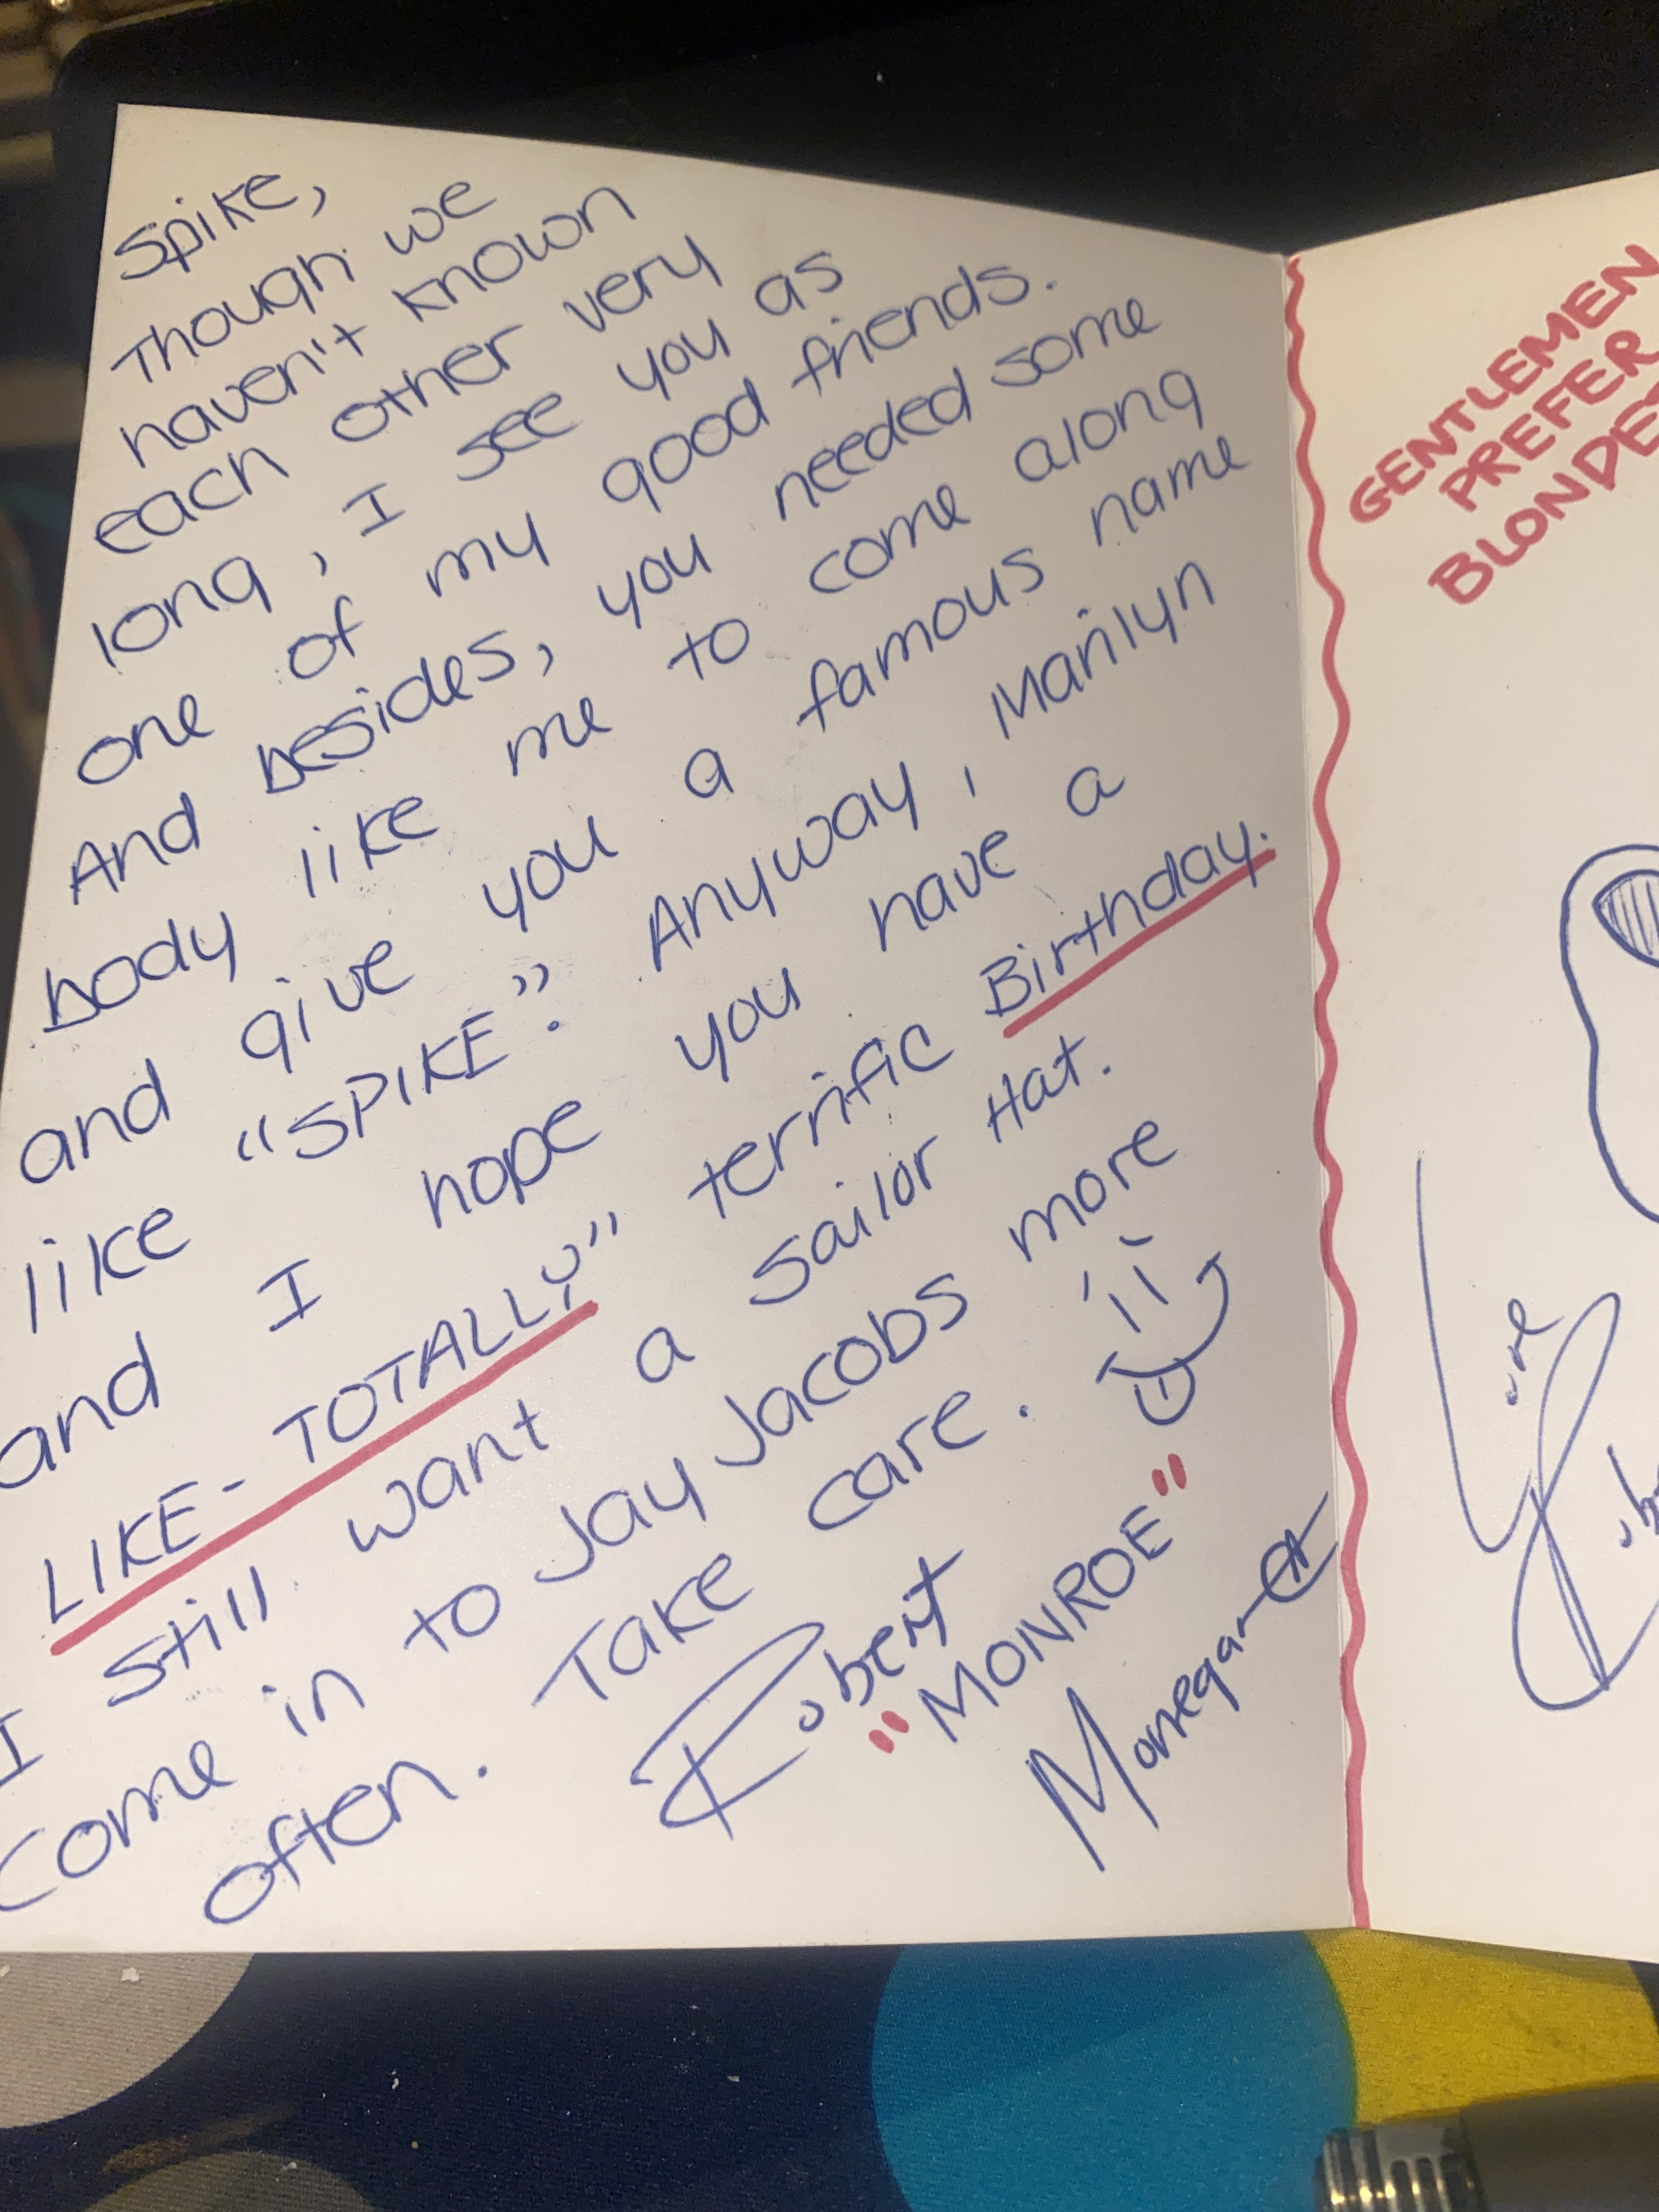 Spike,
Though we
haven't known
each other very
long, I see you as
one of my good friends.
And besides, you needed some
body like me to come along
and give you a famous name
like "SPIKE". Anyway, Marilyn
and I hope you have a
LIKE-TOTALLY" terrific Birthday.
I still want a sailor Hat.
Come in to Jay Jacobs more
often. Take care.
Robert
"MONROE"
GENTLEMEN
PREFER
BLONDE
Love